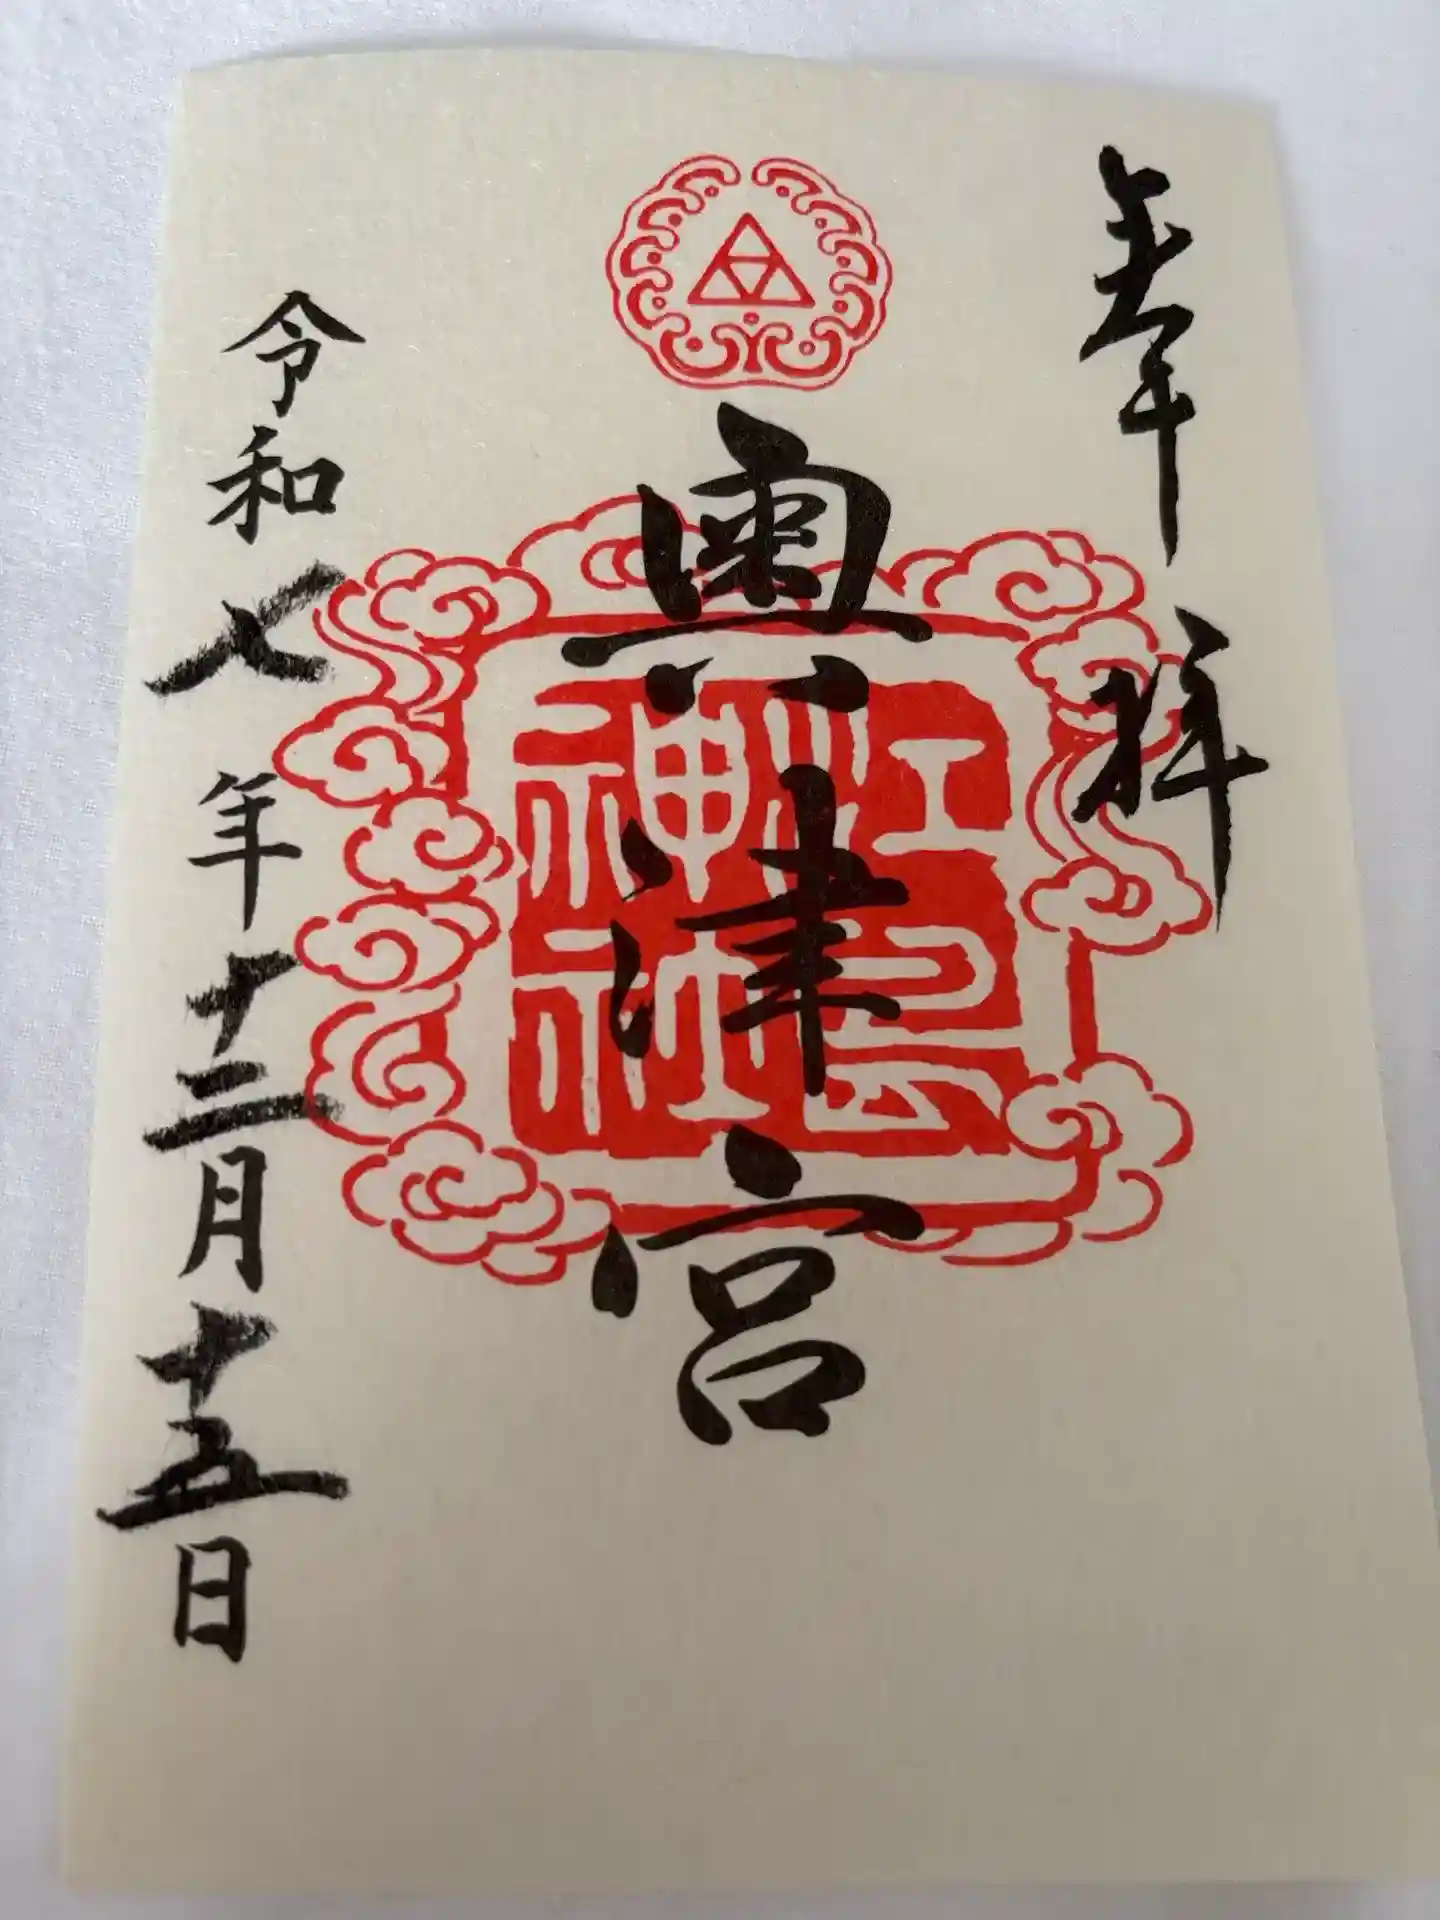 奉拝
奧津宮
江島神社
令和七年十二月十五日